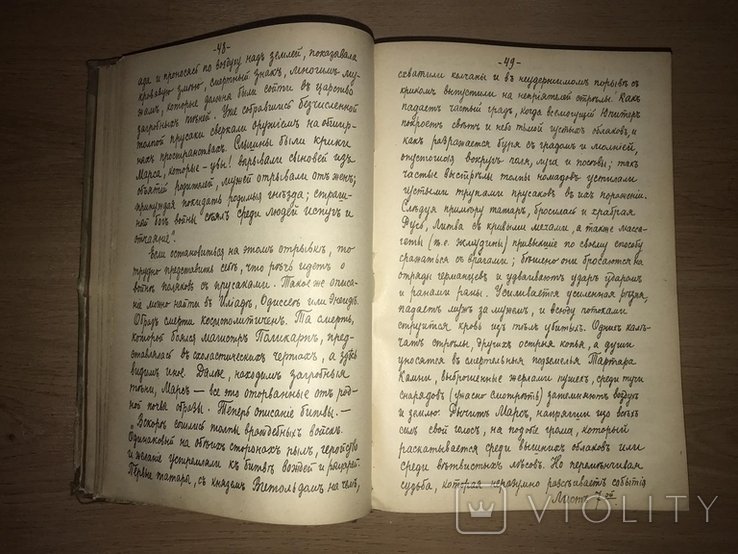 -48-
ада и проносясь по воздуху надъ землей, показывала
кровавую змѣю, смертный знакъ, многимъ му-
жамъ, которые должны были сойти въ царство
загробныхъ тѣней. Уже собрались безчисленной
толпой прусаки сверкали оружіемъ на обшир-
ныхъ пространствахъ. Слышны были крики
Марса, которые - увы! вырывали сыновей изъ
объятій родителей, мужей отрывали отъ женъ,
принуждая покидать родимыя гнѣзда; страш-
ной богъ войны сѣялъ среди людей испугъ и
отчаяніе".
Если остановиться на этомъ отрывкѣ, то
трудно представить себѣ, что рѣчь идетъ о
войнѣ поляковъ съ прусаками. Такое же описа-
ніе можно найти въ Иліадѣ, Одиссеѣ или Энеидѣ.
Образъ смерти космополитиченъ. Та смерть,
которой боялся магистръ Поликарпъ, пред-
ставлялась въ схоластическихъ чертахъ, а здѣсь
видимъ иное. Далѣе, находимъ загробныя
тѣни, Марсъ — все это оторванные отъ род-
ной почвы образы. Теперь описаніе битвы. —
„Вскорѣ сошлись толпы враждебныхъ войскъ.
Одинаковый на обѣихъ сторонахъ пылъ, геройство
и желаніе устремляли къ битвѣ вождей и рыцарей.
Первые татары, съ княземъ Витольдомъ на челѣ,
-49-
схватили колчаны и въ неудержимомъ порывѣ съ
крикомъ выпустили на непріятеля стрѣлы. Какъ
падаетъ частый градъ, когда всемогущій Юпитеръ
покроетъ свѣтъ и небо тьмой густыхъ облаковъ, и
какъ разражается буря съ градомъ и молніей,
опустошая вокругъ поля, луга и посѣвы; такъ
частые выстрѣлы толпы номадовъ устилали
густыми трупами прусаковъ въ ихъ пораженіи.
Слѣдуя примѣру татаръ, бросилась и храбрая
Русь, Литва съ кривыми мечами, а также масса-
геты (т.е. жмудины) привыкшіе по своему способу
сражаться съ врагами; бѣшено они бросаются на
отряды германцевъ и удваиваютъ ударъ ударомъ
и ранами раны. Усиливается усиленная рѣзня,
падаетъ мужъ за мужемъ, и всюду потоками
струится кровь изъ тѣлъ убитыхъ. Однихъ калѣ-
чатъ стрѣлы, другихъ острыя копья, а души
уносятся въ смертельныя подземелья Тартара
Камни, выброшенные жерлами пушекъ, среди тучи
снарядовъ (ужасно смотрѣть) затемняютъ воздухъ
и землю. Дычитъ Марсъ, напрягши изо всѣхъ
силъ свой голосъ, на подобіе грома, который
раскатывается среди вышнихъ облаковъ или
среди вѣтвистыхъ лѣсовъ. Но перемѣнчивая
судьба, которая неразумно развиваетъ событія
Листъ 7-ой
VIOLITY